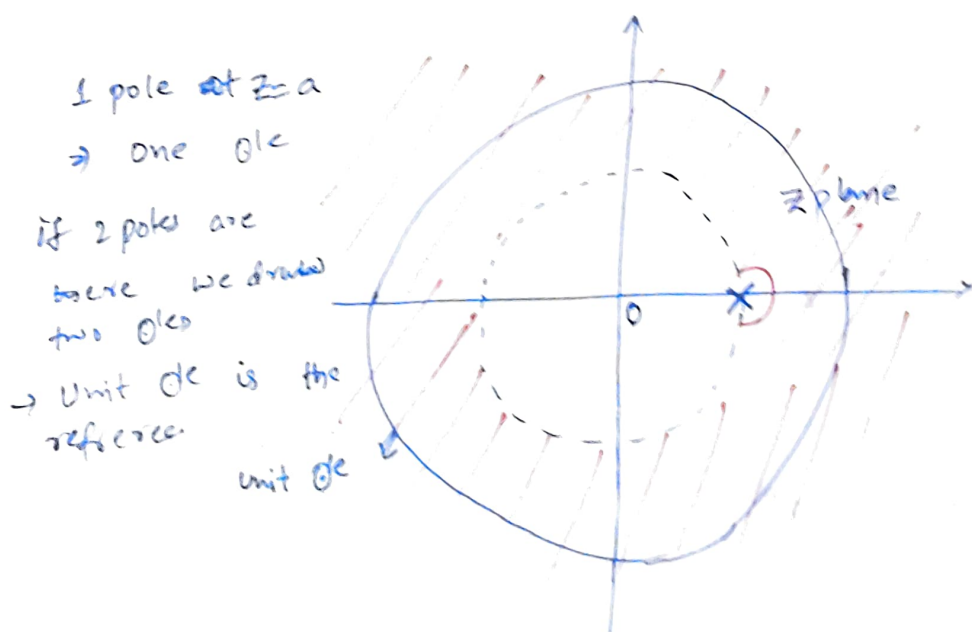 1 pole at z=a
⇒ one ⊙le
if 2 poles are
there we draw
two ⊙les
→ Unit ⊙le is the
unit ⊙le
z plane
0